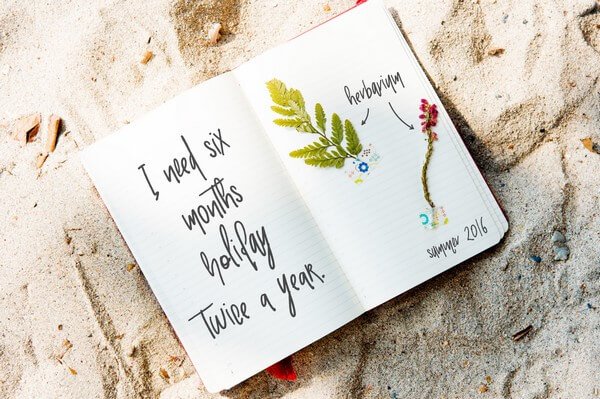 I need six
months
holiday
Twice a year.
herbarium
summer 2016